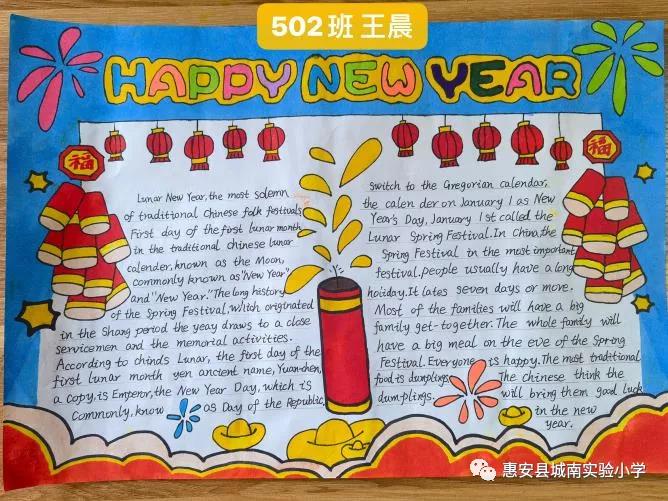 502班 王晨
HAPPY NEW YEAR
福
福
Lunar New Year, the most solemn
of traditional chinese folk festivals
First day of the first lunar month
in the traditional chinese lunar
calender, known as the Moon,
commonly known as "New Year"
and "New Year." The long history
of the Spring Festival, Witch originated
in the Shang period the yeay draws to a close
servicemen and the memorial activities.
According to china's Lunar, the first day of the
first lunar month yen ancient name, Yuan-chen,
a copy, is Emperor, the New Year Day, which is
Commonly. know as Day of the Republic,
switch to the Gregorian calendar,
the calen der on January 1 as New
Year's Day, January 1st called the
Lunar Spring Festival. In China, the
Spring Festival in the most important
festival. people usually have a long
holiday. It lates seven days or more.
Most of the families will have a big
family get-together. The whole family will
have a big meal on the eve of the Spring
Festival. Everyone is happy. The most traditional
food is dumplings. The chinese think the
dum-plings. will bring them good luck
in the new
year.
惠安县城南实验小学